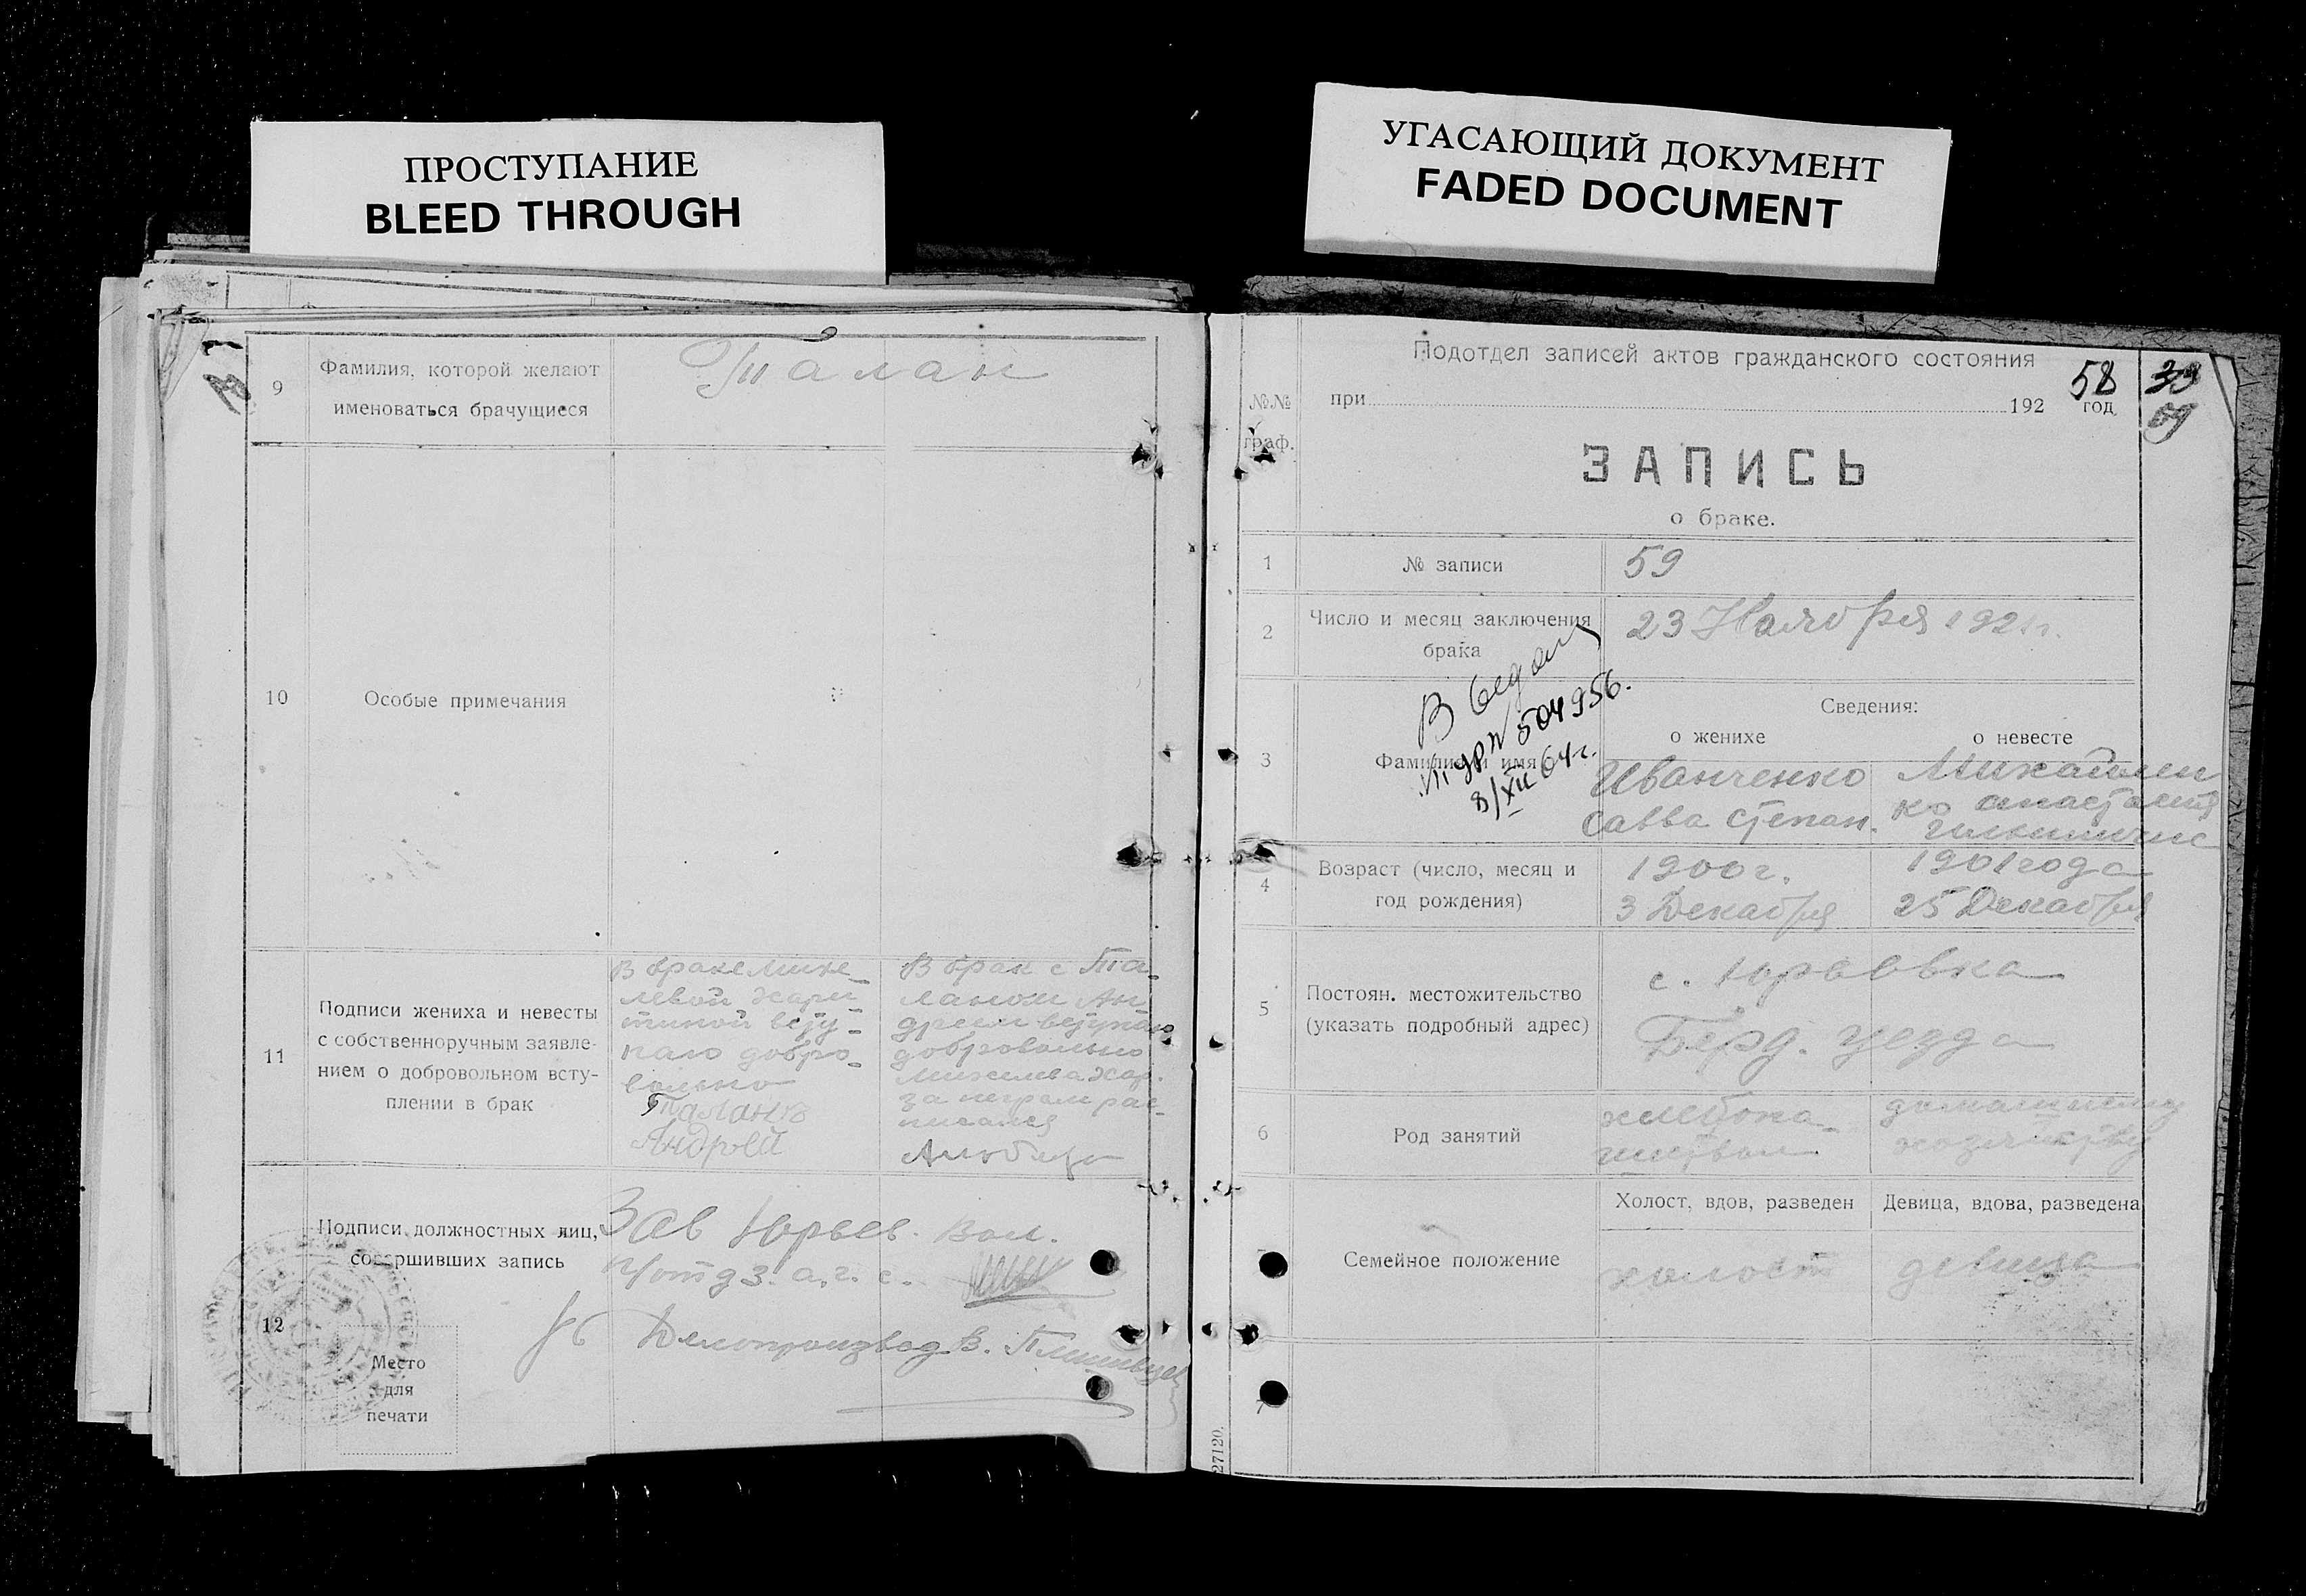 ПРОСТУПАНИЕ
BLEED THROUGH
УГАСАЮЩИЙ ДОКУМЕНТ
FADED DOCUMENT
9
Фамилия, которой желают
именоваться брачущиеся
Талан
10
Особые примечания
11
Подписи жениха и невесты
с собственноручным заявле-
нием о добровольном всту-
плении в брак
В браке Михе-
левой Хари-
тиной всту-
паю добро-
вольно
Таланъ
Андрей
В брак с Та-
ланом Ан-
дреем вступаю
добровольно
Михелева Хар.
за неграм рас-
писался
12
Подписи должностных лиц,
совершивших запись
Зав Юрьев. Вол.
п/отд з. а. г. с.
Делопроизвод В.
Место
для
печати
Подотдел записей актов гражданского состояния
58
39
59
№№
граф.
при
192
год
ЗАПИСЬ
о браке.
1
№ записи
59
2
Число и месяц заключения
брака
23 Ноября 1921 г.
3
Фамилия и имя
504956.
8/XII 64 г.
Сведения:
о женихе
о невесте
Иванченко
Савва Степан.
Михайлен
ко Анастасия
4
Возраст (число, месяц и
год рождения)
1900 г.
3 Декабря
1901 года
25 Декабря
5
Постоян. местожительство
(указать подробный адрес)
с. Юрьевка
Берд. уезда
6
Род занятий
хлебопа-
шеством
домашнему
хозяйству
Семейное положение
Холост, вдов, разведен
Девица, вдова, разведена
холост
девица
7
27120.